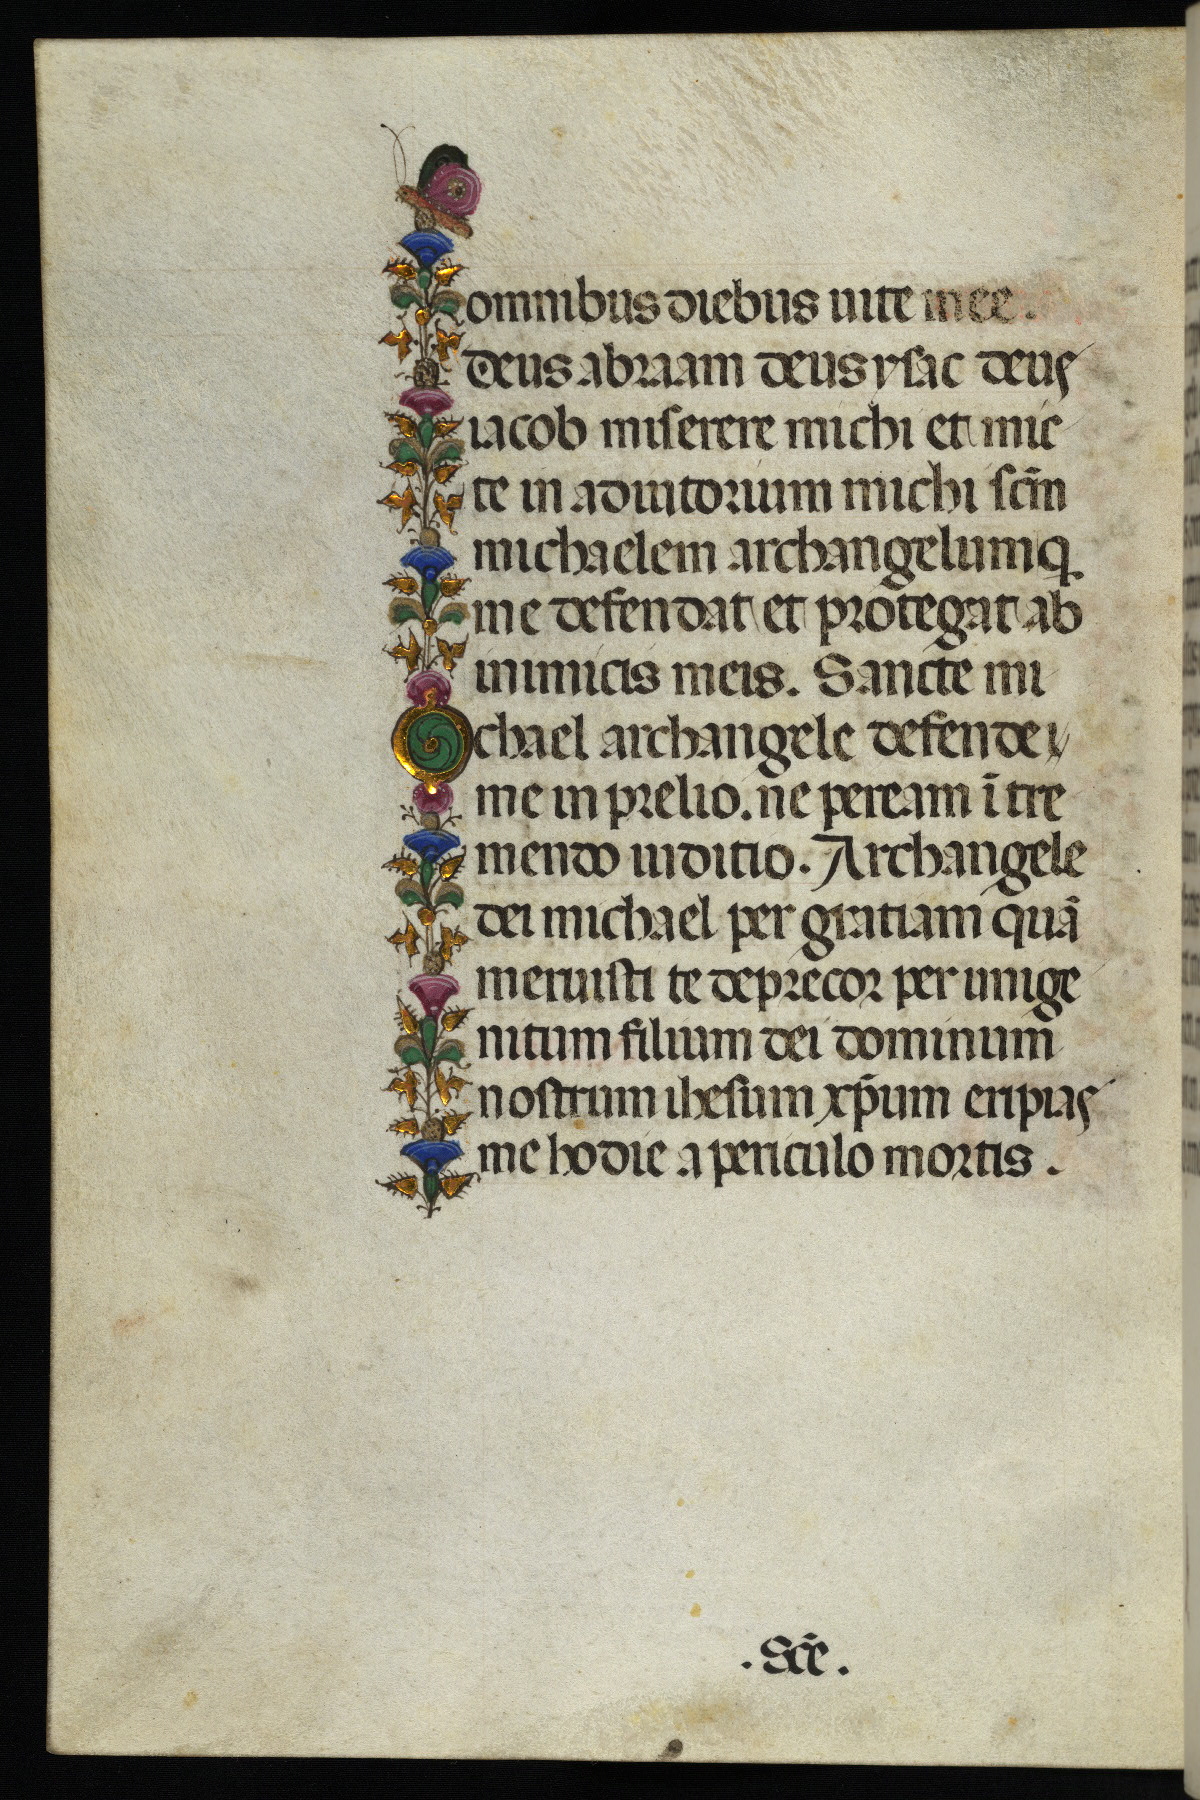 omnibus diebus uite mee.
Deus abraam deus ysac deus
iacob miserere michi et mic
te in adiutorium michi sc̄m
michaelem archangelum q
me defendat et protegat ab
inimicis meis. Sancte mi
chael archangele defende
me in prelio. ne peream ī tre
mendo iuditio. Archangele
dei michael per gratiam quā
meruisti te deprecor per unige
nitum filium dei dominum
nostrum ihesum xp̄um eripias
me hodie a periculo mortis.
.Sc̄e.